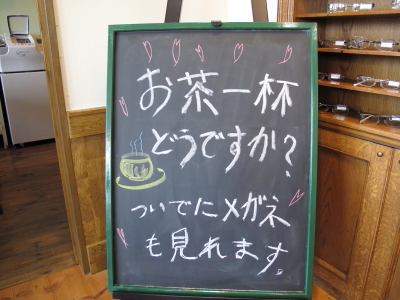 お茶一杯
どうですか?
ついでにメガネ
も見れます。